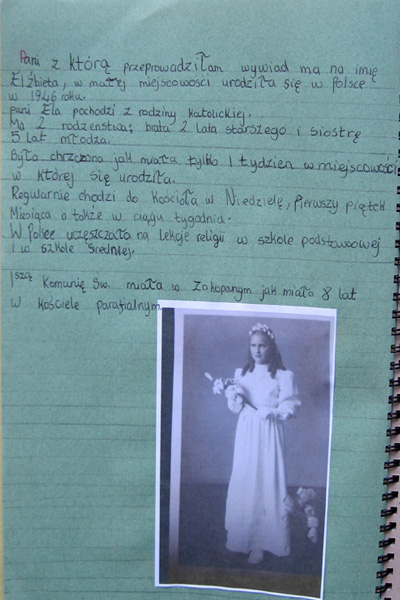 Pani z którą przeprowadziłam wywiad ma na imię
Elżbieta, w małej miejscowości urodziła się w Polsce
w 1946 roku.
pani Ela pochodzi z rodziny katolickiej.
Ma 2 rodzeństwa; brata 2 lata starszego i siostrę
5 lat młodza.
Była chrzczona jak miała tylko 1 tydzien w miejscowości
w której się urodziła.
Regularnie chodzi do kościoła w Niedzielę, pierwszy piątek
Miesiąca a także w ciągu tygodnia.
W Polsce uczęszczała na lekcje religii w szkole podstawowej
i w szkole średniej.
1szą Komunię Św. miała w Zakopanym jak miała 8 lat
w kościele parafialnym